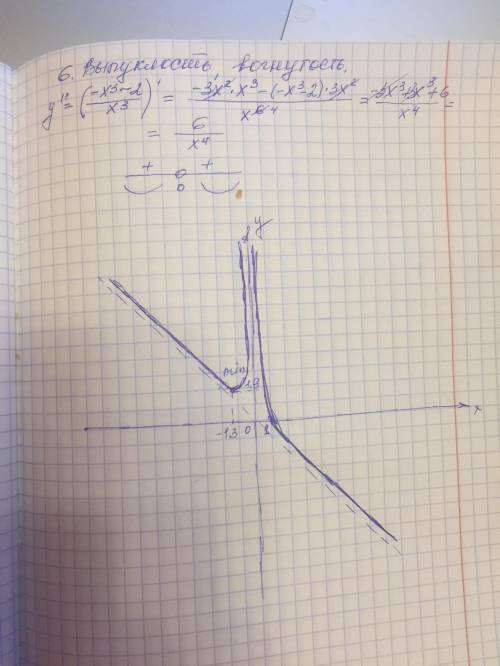 6. Выпуклость вогнутость.
y'' = (-x³-2 / x³)' = -3x²·x³-(-x³-2)·3x² / x⁶ ⁴ = -3x³+3x³+6 / x⁴ =
= 6 / x⁴
+ +
0
y
min
1,9
-1,3 0 1 x